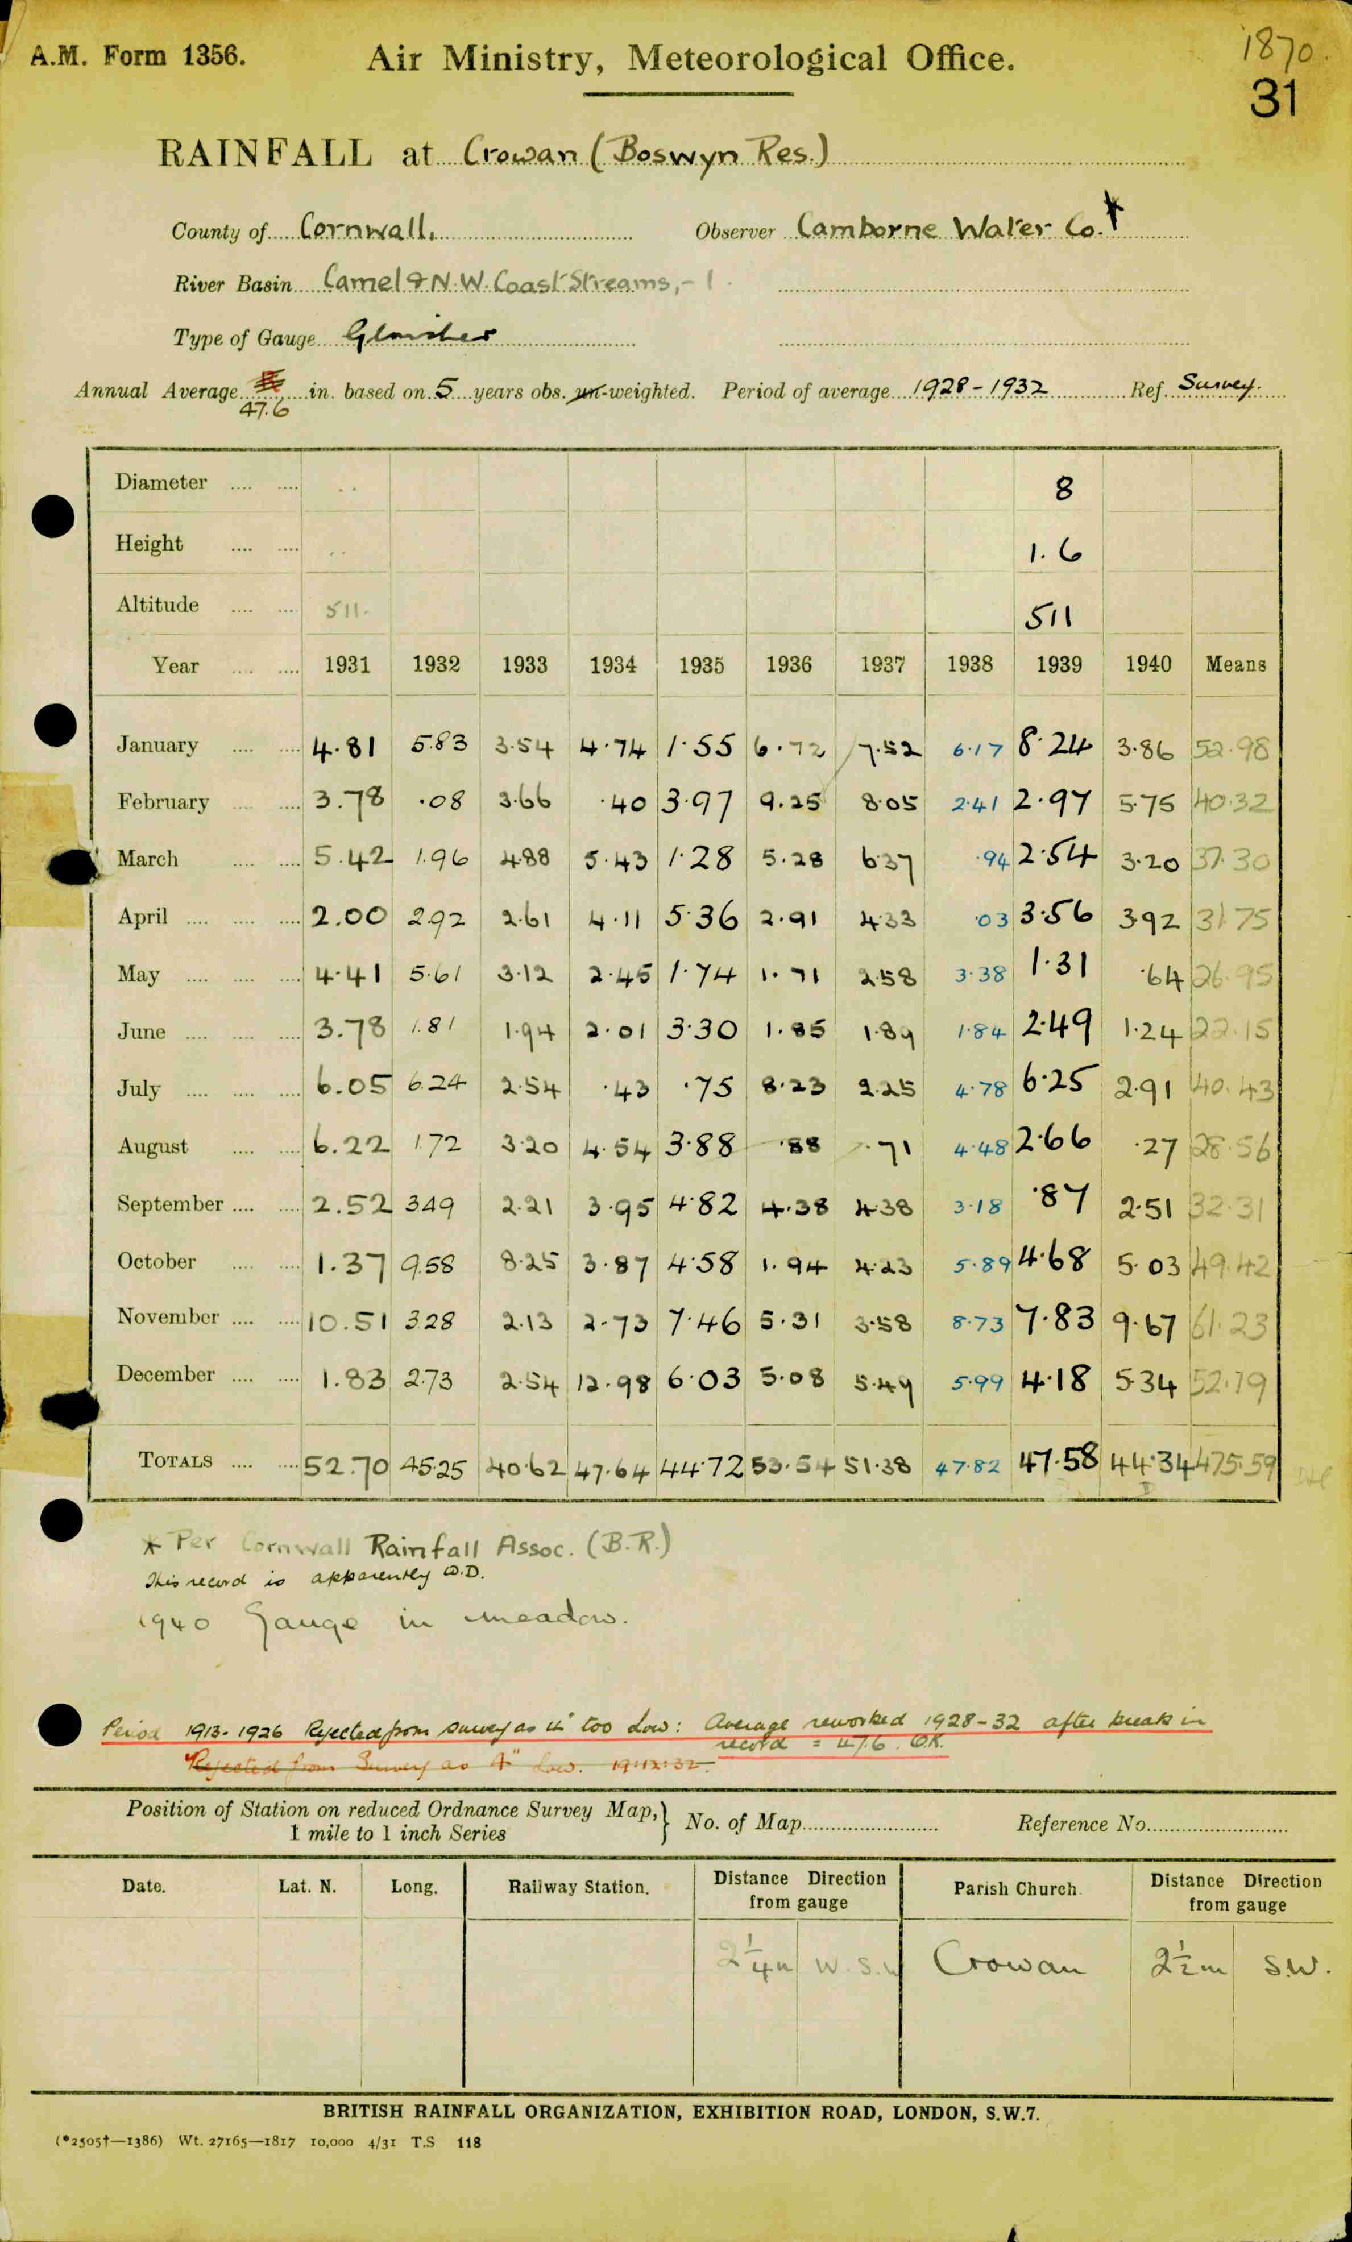 A.M. Form 1356. Air Ministry, Meteorological Office. 1870.
31
RAINFALL at Crowan (Boswyn Res.)
County of Cornwall. Observer Camborne Water Co.*
River Basin Camel & N.W. Coast Streams, - 1.
Type of Gauge Glaisher
Annual Average in. based on 5 years obs. un-weighted. Period of average 1928-1932 Ref. Survey.
47.6
Diameter 8
Height 1.6
Altitude 511. 511
Year 1931 1932 1933 1934 1935 1936 1937 1938 1939 1940 Means
January 4.81 5.83 3.54 4.74 1.55 6.72 7.52 6.17 8.24 3.86 52.98
February 3.78 .08 3.66 .40 3.97 9.25 8.05 2.41 2.97 5.75 40.32
March 5.42 1.96 4.88 5.43 1.28 5.28 6.37 .94 2.54 3.20 37.30
April 2.00 2.92 2.61 4.11 5.36 2.91 4.33 .03 3.56 3.92 31.75
May 4.41 5.61 3.12 2.45 1.74 1.71 2.58 3.38 1.31 .64 26.95
June 3.78 1.81 1.94 2.01 3.30 1.85 1.89 1.84 2.49 1.24 22.15
July 6.05 6.24 2.54 .43 .75 8.23 2.25 4.78 6.25 2.91 40.43
August 6.22 1.72 3.20 4.54 3.88 .88 .71 4.48 2.66 .27 28.56
September 2.52 3.49 2.21 3.95 4.82 4.38 4.38 3.18 .87 2.51 32.31
October 1.37 9.58 8.25 3.87 4.58 1.94 4.23 5.89 4.68 5.03 49.42
November 10.51 3.28 2.13 2.73 7.46 5.31 3.58 8.73 7.83 9.67 61.23
December 1.83 2.73 2.54 12.98 6.03 5.08 5.49 5.99 4.18 5.34 52.19
TOTALS 52.70 45.25 40.62 47.64 44.72 53.54 51.38 47.82 47.58 44.34 475.59
* Per Cornwall Rainfall Assoc. (B.R.)
This record is apparently O.D.
1940 Gauge in meadow.
Period 1913-1926 Rejected from survey as 4" too low: Average reworked 1928-32 after break in
record = 47.6. O.K.
Rejected from Survey as 4" low.
Position of Station on reduced Ordnance Survey Map,} No. of Map Reference No.
1 mile to 1 inch Series
Date. Lat. N. Long. Railway Station. Distance Direction from gauge Parish Church. Distance Direction from gauge
2¼m W.S.W Crowan 2½m S.W.
BRITISH RAINFALL ORGANIZATION, EXHIBITION ROAD, LONDON, S.W.7.
(*2505†—1386) Wt. 27165—1817 10,000 4/31 T.S 118